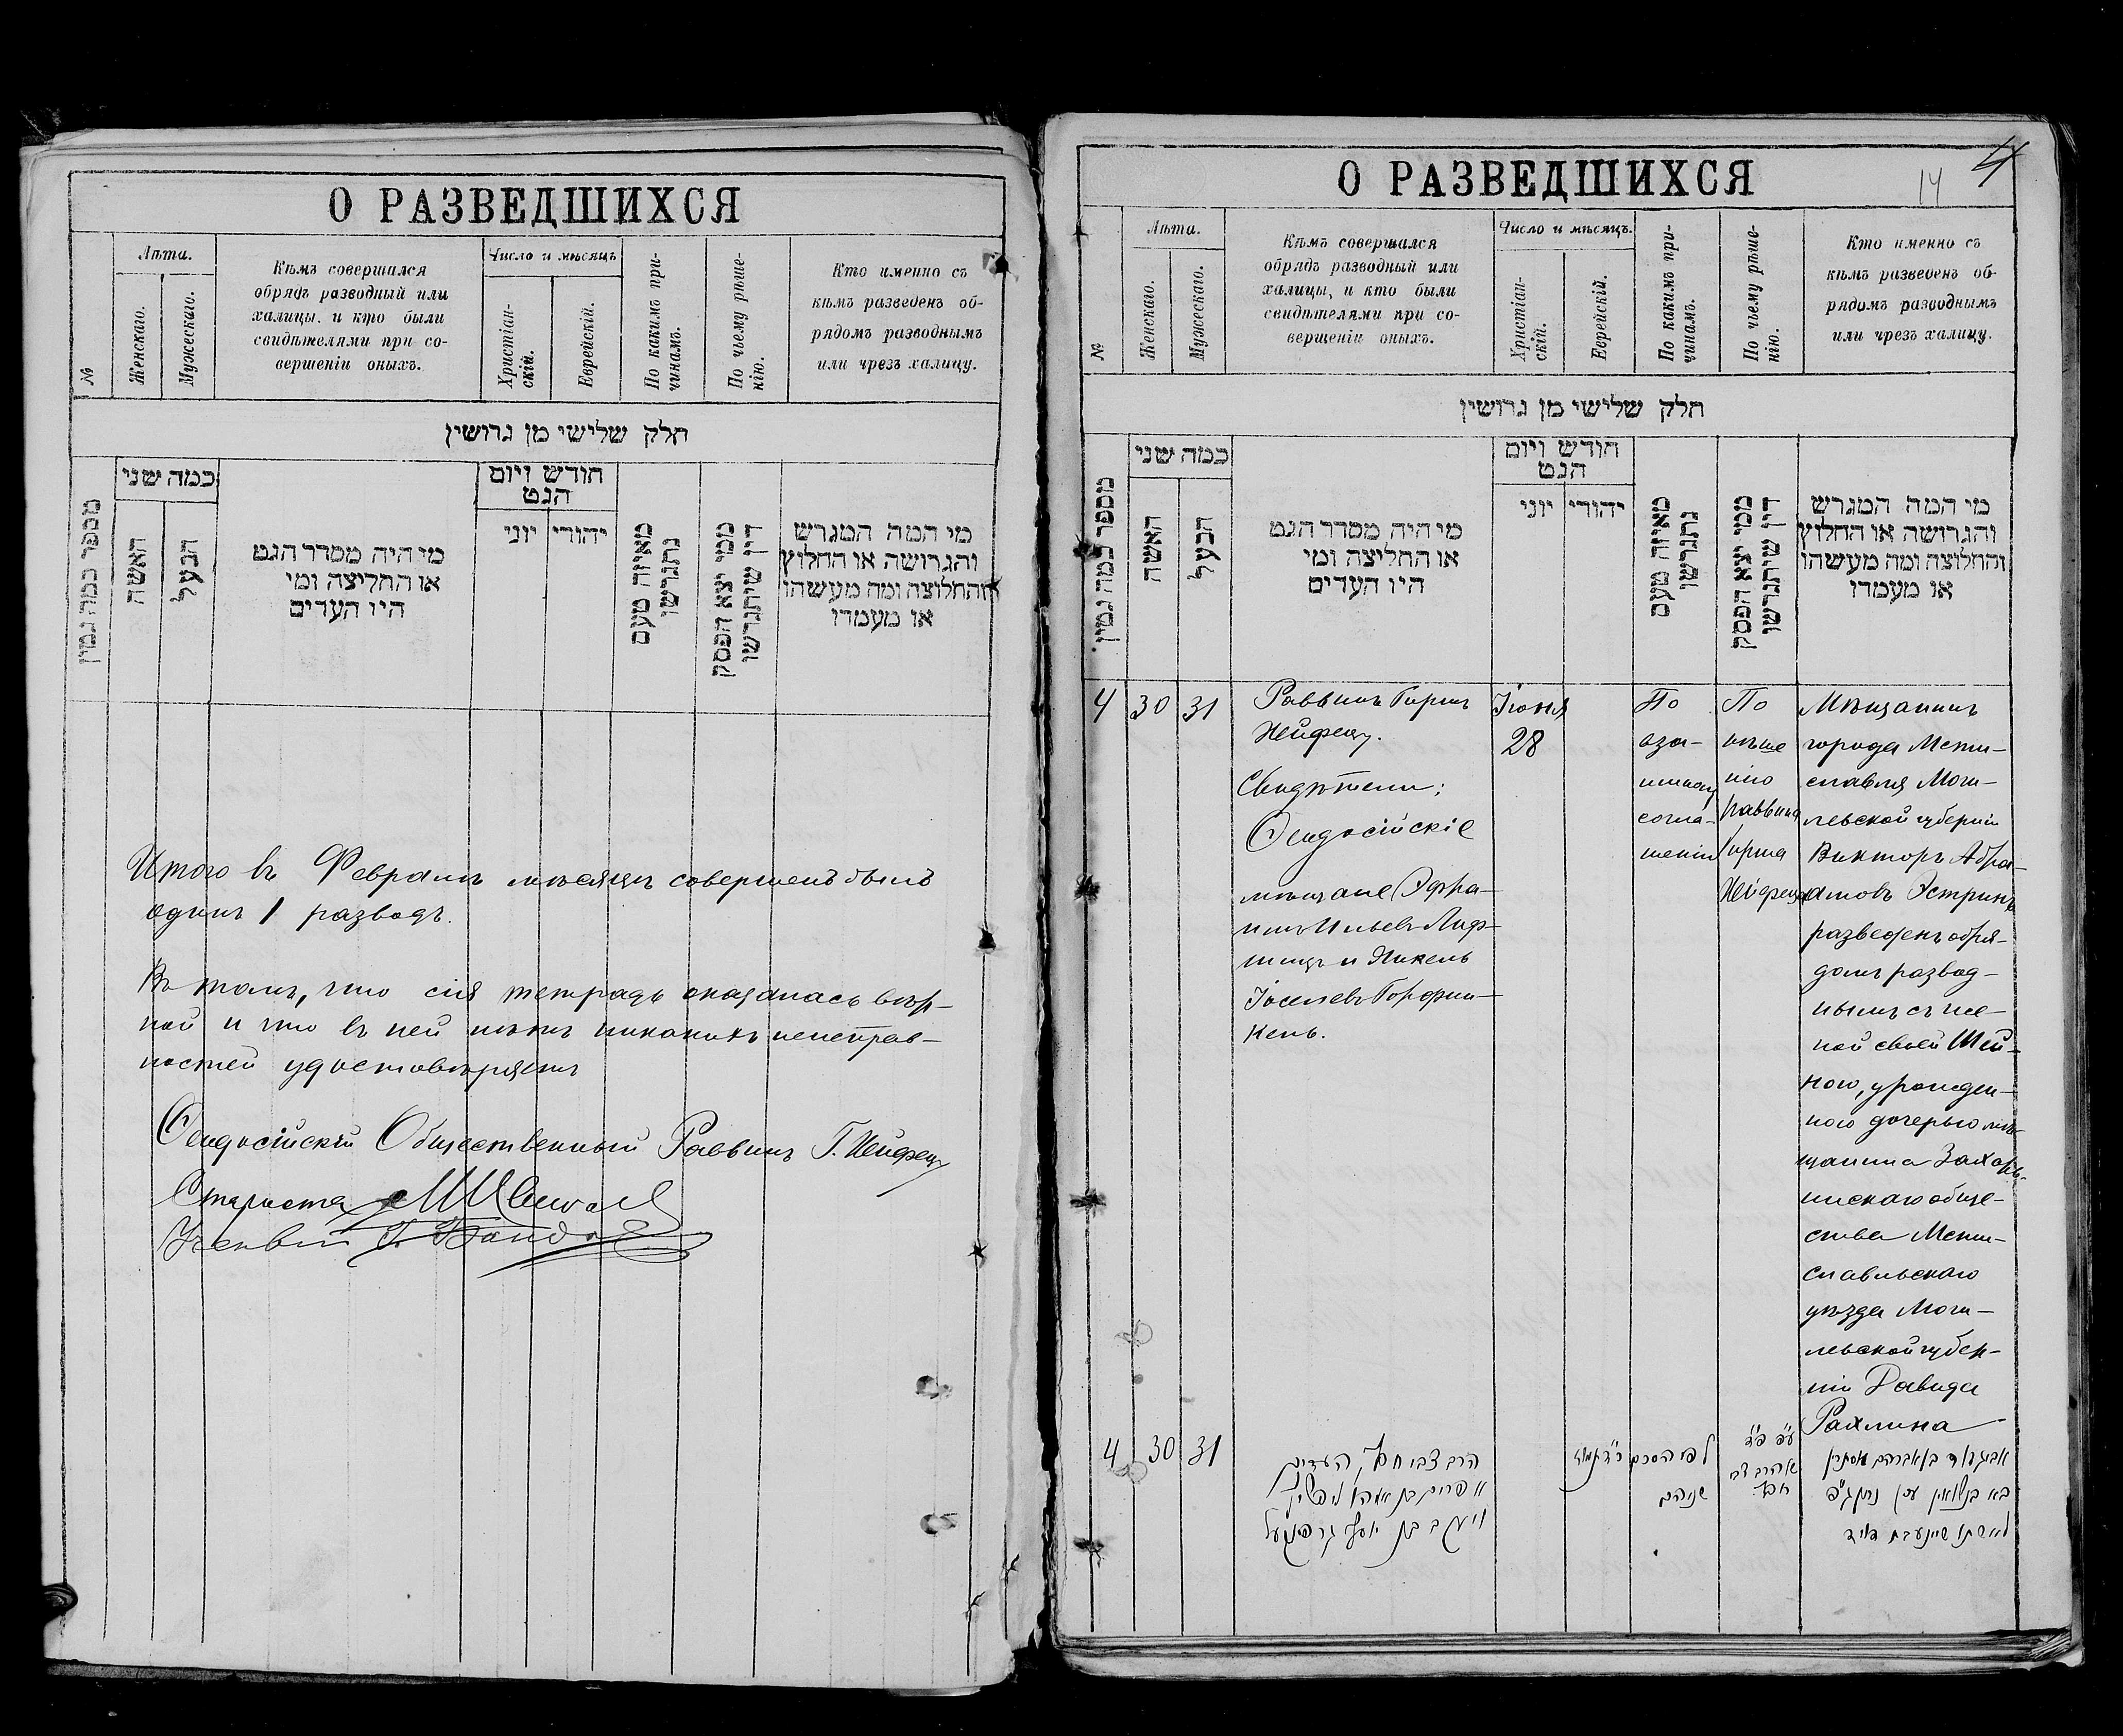 О РАЗВЕДШИХСЯ
№
Лѣта.
Женскаго.
Мужескаго.
Кѣмъ совершался
обрядъ разводный или
халицы, и кто были
свидѣтелями при со-
вершеніи оныхъ.
Число и мѣсяцъ
Христіан-
скій.
Еврейскій.
По какимъ при-
чинамъ.
По чьему рѣше-
нію.
Кто именно съ
кѣмъ разведенъ об-
рядомъ разводнымъ
или чрезъ халицу.
חלק שלישי מן גרושין
מספר כמה גטין
כמה שני
האשה
הבעל
מי היה מסדר הגט
או החליצה ומי
היו העדים
חודש ויום
הגט
יוני
יהודי
מאיזה טעם
נתגרשו
ממי יצא הפסק
דין שיתגרשו
מי המה המגרש
והגרושה או החלוץ
והחלוצה ומה מעשהו
או מעמדו
Итого въ Февралѣ мѣсяцѣ совершенъ былъ
одинъ 1 разводъ.
Въ томъ, что сія тетрадь оказалась вѣр-
ной и что въ ней нѣтъ никакихъ неисправ-
ностей удостовѣряемъ
Ѳеодосійскій Общественный Раввинъ Г. Хейфецъ
Староста
О РАЗВЕДШИХСЯ
14
4
№
Лѣта.
Женскаго.
Мужескаго.
Кѣмъ совершался
обрядъ разводный или
халицы, и кто были
свидѣтелями при со-
вершеніи оныхъ.
Число и мѣсяцъ.
Христіан-
скій.
Еврейскій.
По какимъ при-
чинамъ.
По чьему рѣше-
нію.
Кто именно съ
кѣмъ разведенъ об-
рядомъ разводнымъ
или чрезъ халицу.
חלק שלישי מן גרושין
מספר כמה גטין.
כמה שני
האשה
הבעל
מי היה מסדר הגט
או החליצה ומי
היו העדים
חודש ויום
הגט
יוני
יהודי
מאיזה טעם
נתגרשו
ממי יצא הפסק
דין שיתגרשו
מי המה המגרש
והגרושה או החלוץ
והחלוצה ומה מעשהו
או מעמדו
4
30
31
Раввинъ Гиршъ
Хейфецъ.
Свидѣтели:
Ѳеодосійскіе
мѣщане Эфра-
имъ Ильевъ Лиф-
шицъ и Янкель
Іоселевъ Горфин-
кель.
Іюня
28
По
вза-
имному
согла-
шенію
По
рѣше
нію
Раввина
Гирша
Хейфеца
Мѣщанинъ
города Мсти-
славля Моги-
левской губерніи
Викторъ Абра-
амовъ Эстринъ
разведенъ обря-
домъ развод-
нымъ съ же-
ной своей Шей-
ною, урожден-
ною дочерью мѣ-
щанина
скаго обще-
ства Мсти-
славльскаго
уѣзда Моги-
левской губер-
ніи Давида
Рахлина
4
30
31
הרב צבי חפץ, העדים
לפי הסכם
שניהם
ע״פ פ״ד
הרב צבי
חפץ
בן אברהם אסתרין
לאשתו שיינע בת דוד